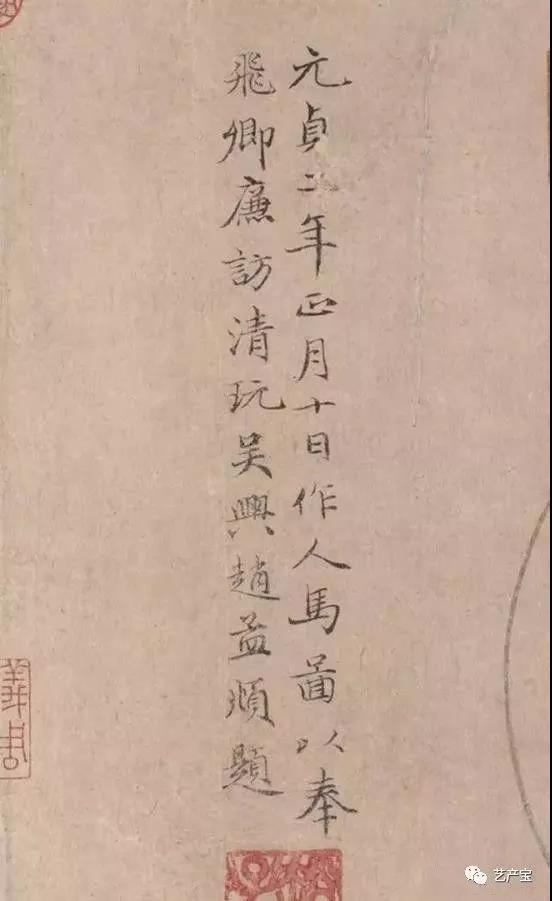 元貞二年正月十日作人馬圖以奉
飛卿廉訪清玩吴興趙孟頫題
艺产宝